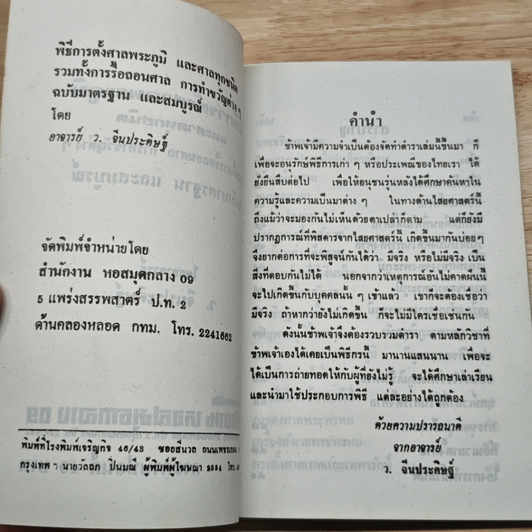 พิธีการตั้งศาลพระภูมิ และศาลทุกชนิด
รวมทั้งการรื้อถอนศาล การทำขวัญต่างๆ
ฉบับมาตรฐาน และสมบูรณ์
โดย
อาจารย์ ว. จีนประดิษฐ์
จัดพิมพ์จำหน่ายโดย
สำนักงาน หอสมุดกลาง 09
5 แพร่งสรรพสาตร์ ป.ท. 2
ด้านคลองหลอด กทม. โทร. 2241662
พิมพ์ที่โรงพิมพ์เจริญกิจ 46/43 ซอยสีนวล ถนนเพชรเกษม
กรุงเทพฯ นายวถถก ปิ่นมณี ผู้พิมพ์ผู้โฆษณา 2534 โทร.
คำนำ
ข้าพเจ้ามีความจำเป็นต้องจัดทำตำราเล่มนี้ขึ้นมา ก็
เพื่อจะอนุรักษ์พิธีการเก่าๆ หรือประเพณีของไทยเรา ได้
ยั่งยืนสืบต่อไป เพื่อให้อนุชนรุ่นหลังได้ศึกษาค้นหาใน
ความรู้และความเป็นมาต่างๆ ในทางด้านไสยศาสตร์นี้
ถึงแม้ว่าจะมองกันไม่เห็นด้วยตาเปล่าก็ตาม แต่ก็ยังมี
ปรากฏการณ์ที่พิสดารจากไสยศาสตร์นี้ เกิดขึ้นมากันบ่อยๆ
จึงยากต่อการที่จะพิสูจน์กันได้ว่า มีจริง หรือไม่มีจริง เป็น
สิ่งที่ตอบกันไม่ได้ นอกจากว่าเหตุการณ์อันไม่คาดฝันนี้
จะไปเกิดขึ้นกับบุคคลนั้นๆ เข้าแล้ว เขาก็จะต้องเชื่อว่า
มีจริง ถ้าหากว่ายังไม่เกิดขึ้น ก็จะไม่มีใครเชื่อเช่นกัน
ดังนั้นข้าพเจ้าจึงต้องรวบรวมตำรา ตามหลักวิชาที่
ข้าพเจ้าเองได้เคยเป็นพิธีกรนี้ มานานแสนนาน เพื่อจะ
ได้เป็นการถ่ายทอดให้กับผู้ที่ยังไม่รู้ จะได้ศึกษาเล่าเรียน
และนำมาใช้ประกอบการพิธี แต่ละอย่างได้ถูกต้อง
ด้วยความปรารถนาดี
จากอาจารย์
ว. จีนประดิษฐ์